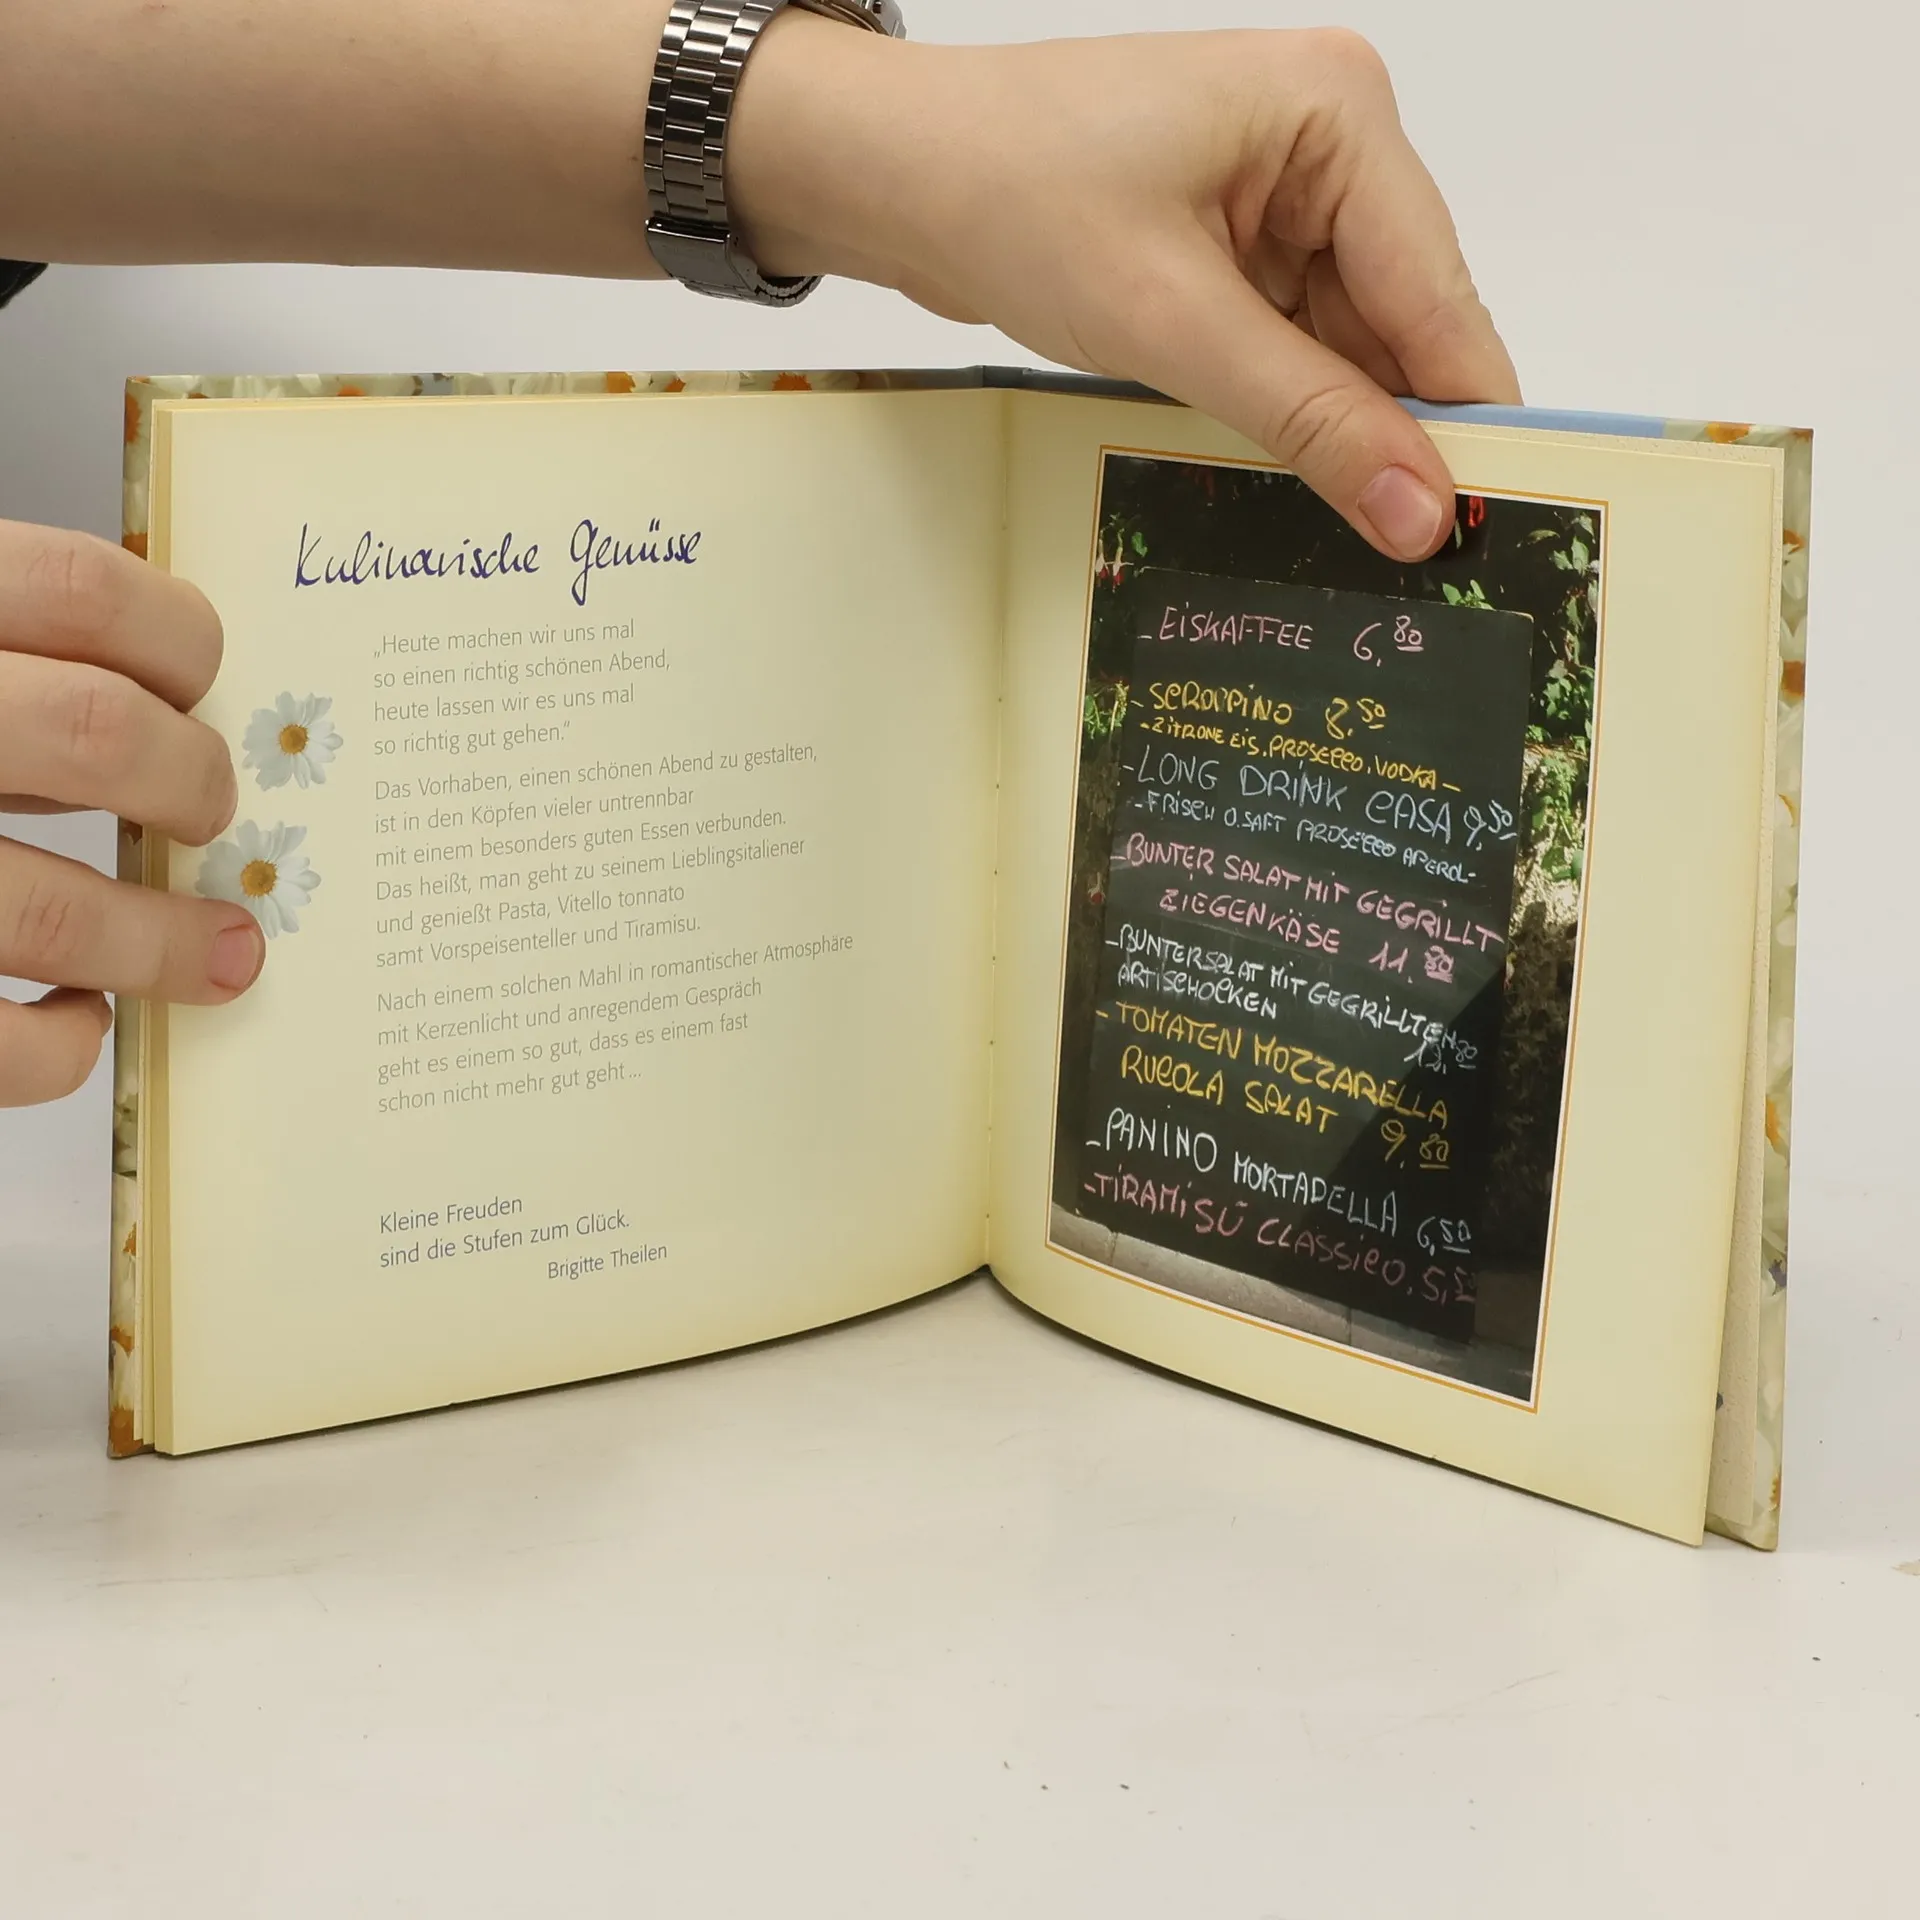 Kulinarische Genüsse
„Heute machen wir uns mal
so einen richtig schönen Abend,
heute lassen wir es uns mal
so richtig gut gehen.“
Das Vorhaben, einen schönen Abend zu gestalten,
ist in den Köpfen vieler untrennbar
mit einem besonders guten Essen verbunden.
Das heißt, man geht zu seinem Lieblingsitaliener
und genießt Pasta, Vitello tonnato
samt Vorspeisenteller und Tiramisu.
Nach einem solchen Mahl in romantischer Atmosphäre
mit Kerzenlicht und anregendem Gespräch
geht es einem so gut, dass es einem fast
schon nicht mehr gut geht ...
Kleine Freuden
sind die Stufen zum Glück.
Brigitte Theilen
- EISKAFFEE 6,80
- SCROPPINO 8,50
- ZITRONE EIS, PROSECCO, VODKA -
- LONG DRINK CASA 9,50
- FRISCH O.SAFT PROSECCO APEROL -
- BUNTER SALAT MIT GEGRILLT
ZIEGENKÄSE 11,80
- BUNTERSALAT MIT GEGRILLTEN
ARTISCHOCKEN 12,80
- TOMATEN MOZZARELLA
RUCOLA SALAT 9,80
- PANINO MORTADELLA 6,50
- TIRAMISÚ CLASSICO, 5,